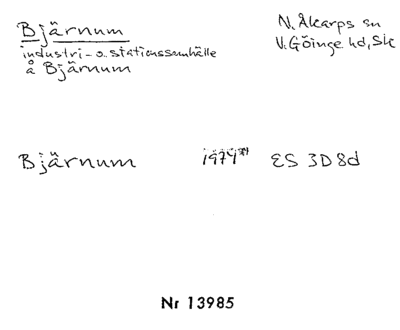 Bjärnum
industri- o. stationssamhälle
å Bjärnum
N. Åkarps sn
V. Göinge hd, Sk
Bjärnum 1974 ES 3D8d
Nr 13985